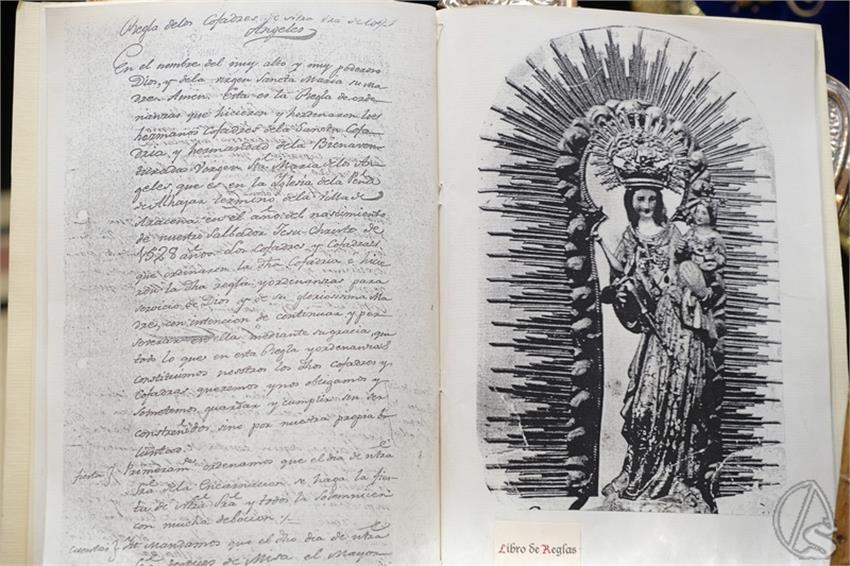 Regla de los Cofadres de ntra Sra de los
Angeles
En el nombre del muy alto y muy poderoso
Dios, y de la virgen Sancta Maria su Ma
dre: Amen. Esta es la Regla de orde
nanzas que hicieron y hordenaron los
hermanos Cofadres de la Sancta Cofa
dria, y hermandad de la Bienaven
turada Virgen Sta Maria de los An
geles, que es en la Iglesia de la Peña
de Alhajar termino de la Villa de
Aracena en el año del nascimiento
de nuestro Salbador Jesu-Christo de
1528 años. Los Cofadres y Cofadras
que ordinaron la dha Cofadria è hicie
ron la dha regla y ordenanzas para
servicio de Dios y de su gloriosissima Ma
dre, con intencion de continuar y per
severar en ella mediante su gracia, que
todo lo que en esta Regla y ordenanzas
constituimos nosotros los dhos Cofadres y
Cofadras queremos y nos obligamos y
sometemos guardar y cumplir sin ser
constreñidos sino por nuestra propia bo
luntad.
fiesta Primeramte ordenamos que el dia de ntra
Sra de la Encarnacion se haga la fies
ta de Ntra Sra y todos la solemnicen
con mucha debocion
cuentas Yt Mandamos que el dho dia de ntra
despues de Misa el Mayor
Libro de Reglas